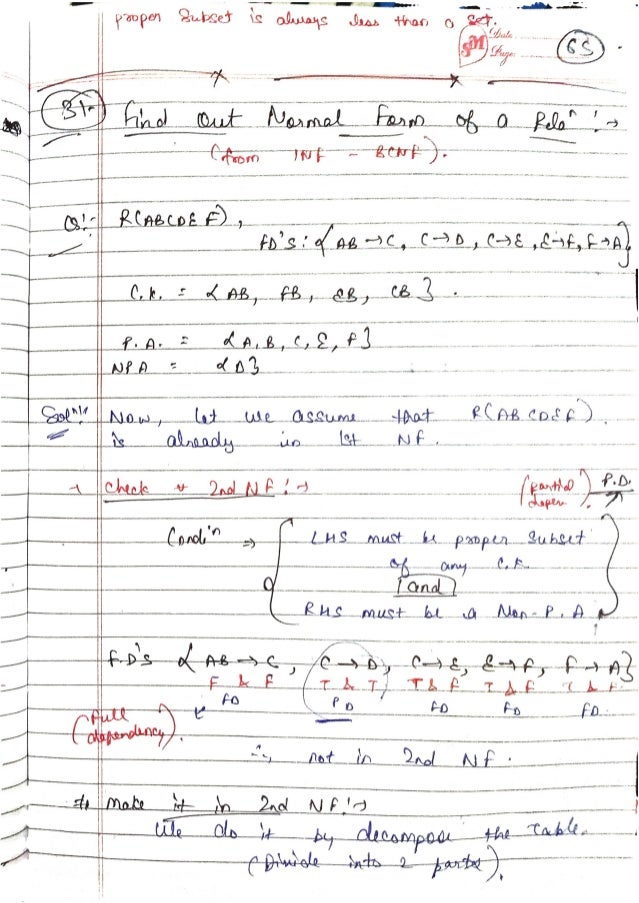 proper Subset is always less than a set.
SM Date
Page 65
31.. Find Out Normal Form of a Relaⁿ :→
(from 1NF - BCNF).
Q:- R(ABCDEF),
FD's: { AB→C, C→D, C→E, E→F, F→A}
C.K. = { AB, FB, EB, CB } .
P.A. = { A, B, C, E, F }
NPA = { D }
Solⁿ:- Now, let we assume that R(ABCDEF)
is already in 1st NF.
→ Check + 2nd NF :→ (partial depen.) P.D.
Condiⁿ ⇒ LHS must be proper Subset
of any C.K.
and
RHS must be a Non-P.A
F.D's { AB→C, C→D, C→E, E→F, F→A}
F & F T & T T & F T & F T & F
FD PD FD FD FD
(full dependency).
∴ not in 2nd NF.
Make it in 2nd NF:→
We do it by decompose the Table.
(Divide into 2 parts).